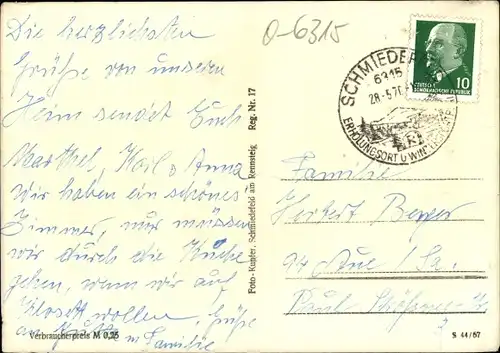 Die herzlichsten
Grüße von unseren
Heim sendet Euch
Marthel, Karl u Anna
Wir haben ein schönes
Zimmer, nur müssen
wir durch die Küche
gehen, wenn wir auf
Klosett wollen, Grüße
an Familie
Verbraucherpreis M 0,25
Foto-Kupfer, Schmiedefeld am Rennsteig Reg. Nr. 17
O-6315
SCHMIEDEFE
6315
28.-5.70
ERHOLUNGSORT U WINTERSPO
10
DEUTSCHE
DEMOKRATISCHE REPUBLIK
Familie
Herbert
94 Aue / Sa.
Paul
S 44/67